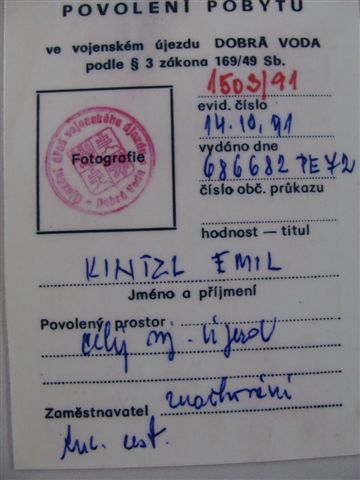 POVOLENÍ POBYTU
ve vojenském újezdu DOBRÁ VODA
podle § 3 zákona 169/49 Sb.
1503/91
evid. číslo
14.10.91
vydáno dne
686682 PE 72
číslo obč. průkazu
hodnost — titul
Fotografie
Újezdní úřad vojenského újezdu
Dobrá Voda
KINTZL EMIL
Jméno a příjmení
Povolený prostor
celý voj. újezd
Zaměstnavatel značkování
tur. cest.